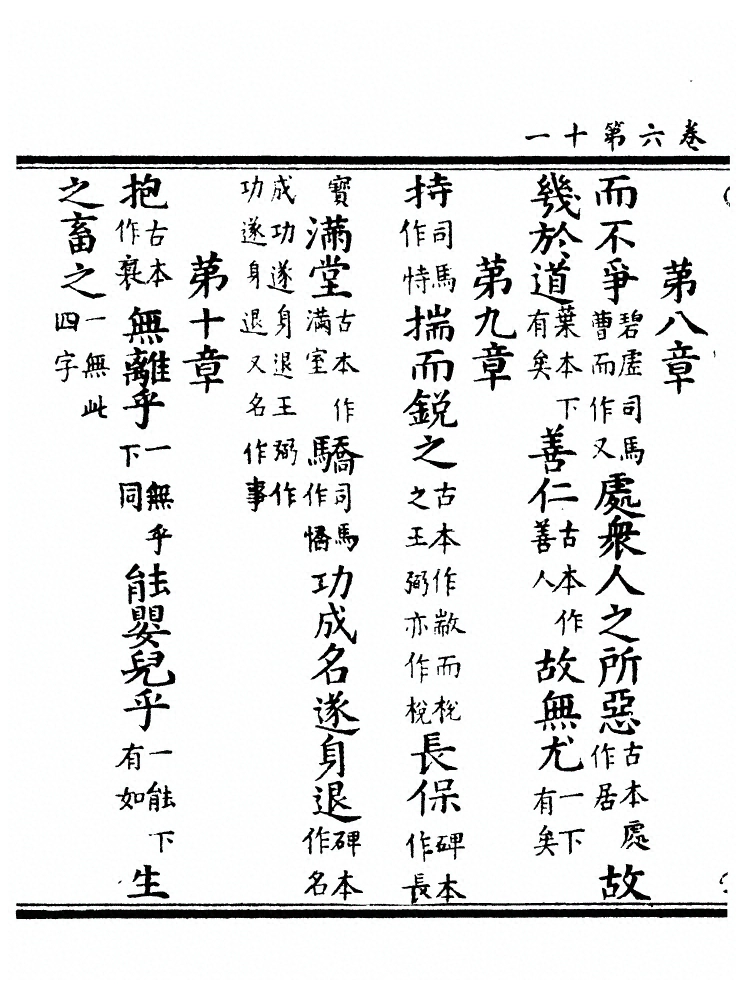 卷六第十一
第八章
而不爭碧虛司馬曹而作又處衆人之所惡古本處作居故
幾於道葉本下有矣善仁古本作善人故無尤一下有矣
第九章
持司馬作恃揣而銳之古本作敝而梲之王弼亦作梲長保碑本作長
寶滿堂古本作滿室驕司馬作憍功成名遂身退碑本作名
成功遂身退王弼作功遂身退又名作事
第十章
抱古本作袌無離乎一無乎下同能嬰兒乎一能下有如生
之畜之一無此四字